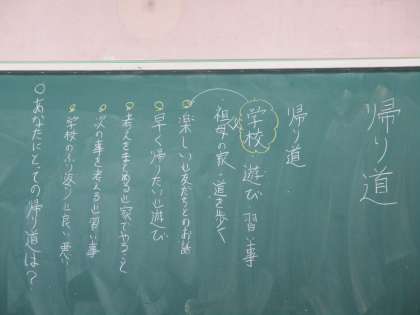 帰り道
帰り道
学校 遊び 習い事
祖父の家・道を歩く
楽しい 友だちとのお話
早く帰りたい 遊び
考えをまとめる 家でやること
次の事を考える 習い事
学校のふり返り 良い 悪い
○あなたにとっての帰り道は?